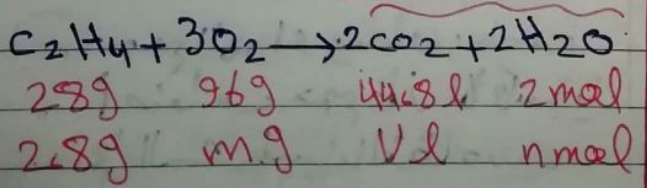 C2H4 + 3O2 → 2CO2 + 2H2O
28g 96g 44.8l 2mol
2.8g m.g Vl nmol